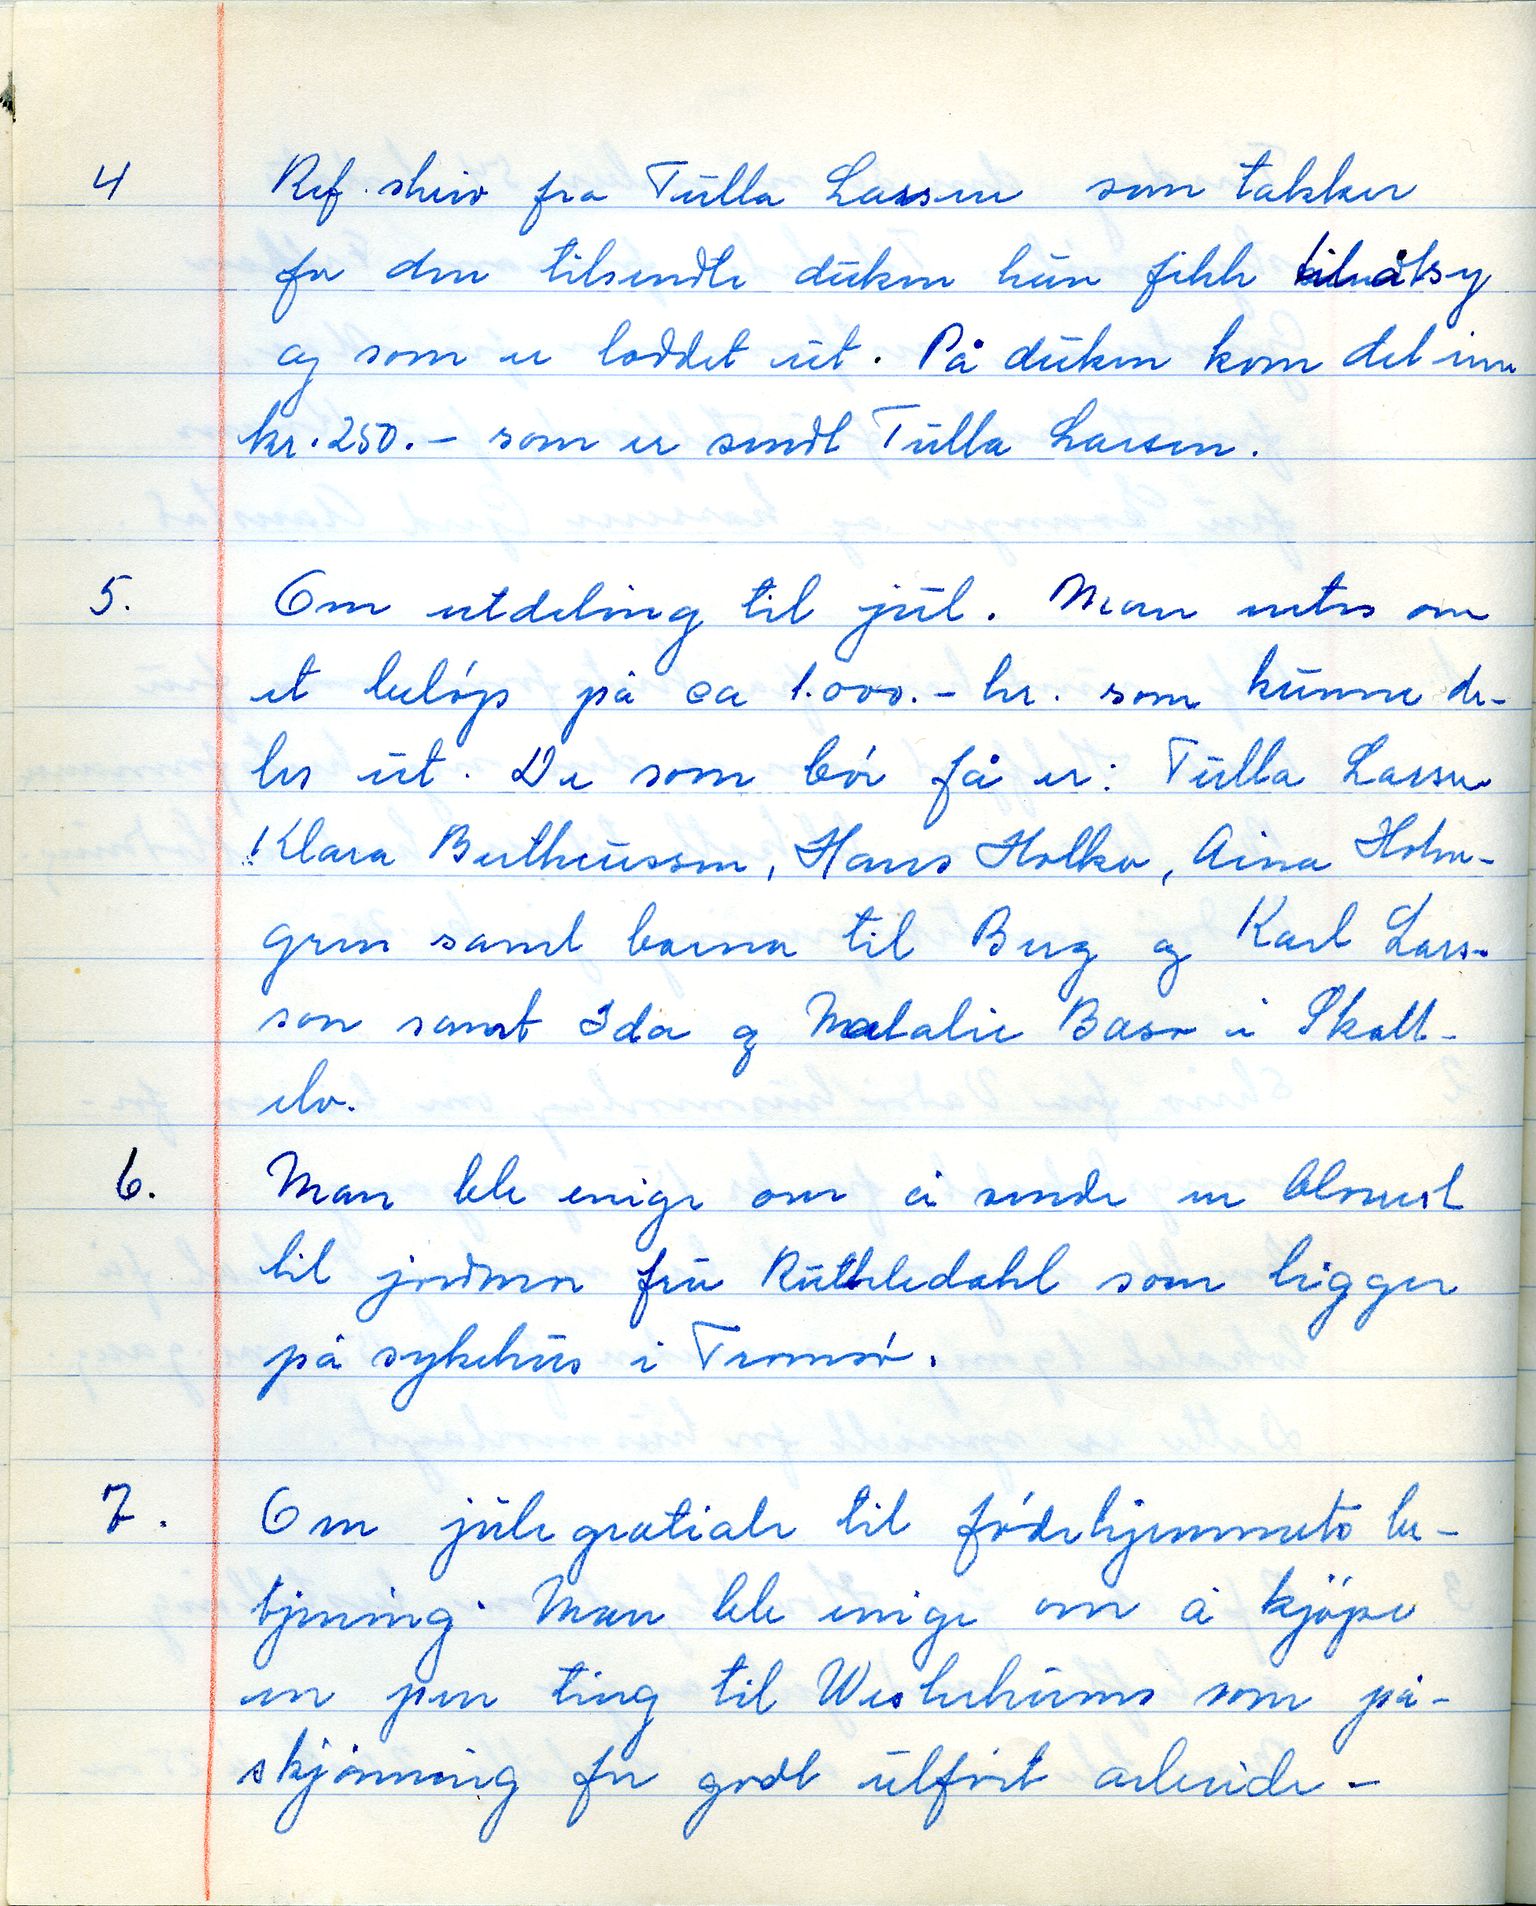 4 Ref. skriv fra Tulla Larsen som takker
for den tilsendte duken hun fikk tilråksy
og som er loddet ut. På duken kom det inn
kr. 250.- som er sendt Tulla Larsen.
5. Om utdeling til jul. Man entes om
et beløp på ca 1.000.- kr. som kunne de-
les ut. De som bør få er: Tulla Larsen
Klara Bertheussen, Hans Holkø, Aina Holm-
gren samt barna til Berg og Karl Lars-
son samt Ida og Natalie Basso i Skall-
elv.
6. Man ble enige om å sende en blomst
til jordmor fru Ruthledahl som ligger
på sykehus i Tromsø.
7. Om julegratiale til fødehjemmets be-
tjening. Man ble enige om å kjøpe
en pen ting til Westerheims som på-
skjønning for godt utført arbeide -